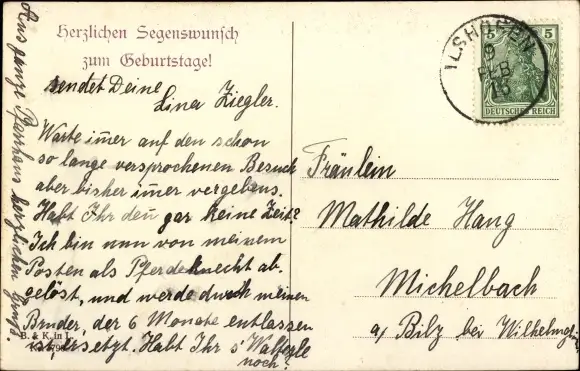 Herzlichen Segenswunsch
zum Geburtstage!
sendet Deine
Lina Ziegler.
Warte im̄er auf den schon
so lange versprochenen Besuch
aber bisher im̄er vergebens.
Habt Ihr den̄ gar keine Zeit?
Ich bin nun von meinem
Posten als Pferdeknecht ab-
gelöst, und werde durch meinen
Bruder, der 6 Monate entlassen
ist, ersetzt. Habt Ihr s'
noch?
Ans ganze Pfarrhaus herzlichen Gruß.
B. & K. in L.
ILSHOFEN
9
FEB
5
DEUTSCHES REICH
Fräulein
Mathilde Hang
Michelbach
a/ Bilz bei